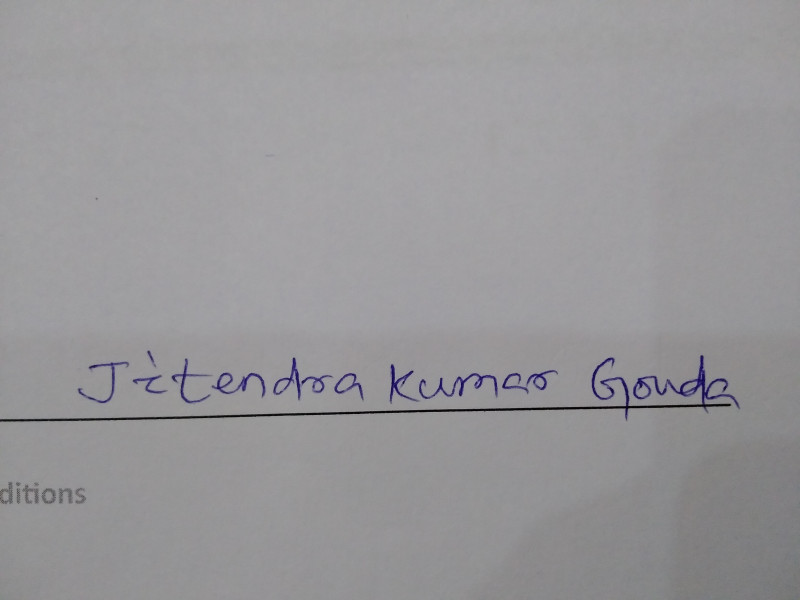 Jitendra Kumar Gouda
ditions